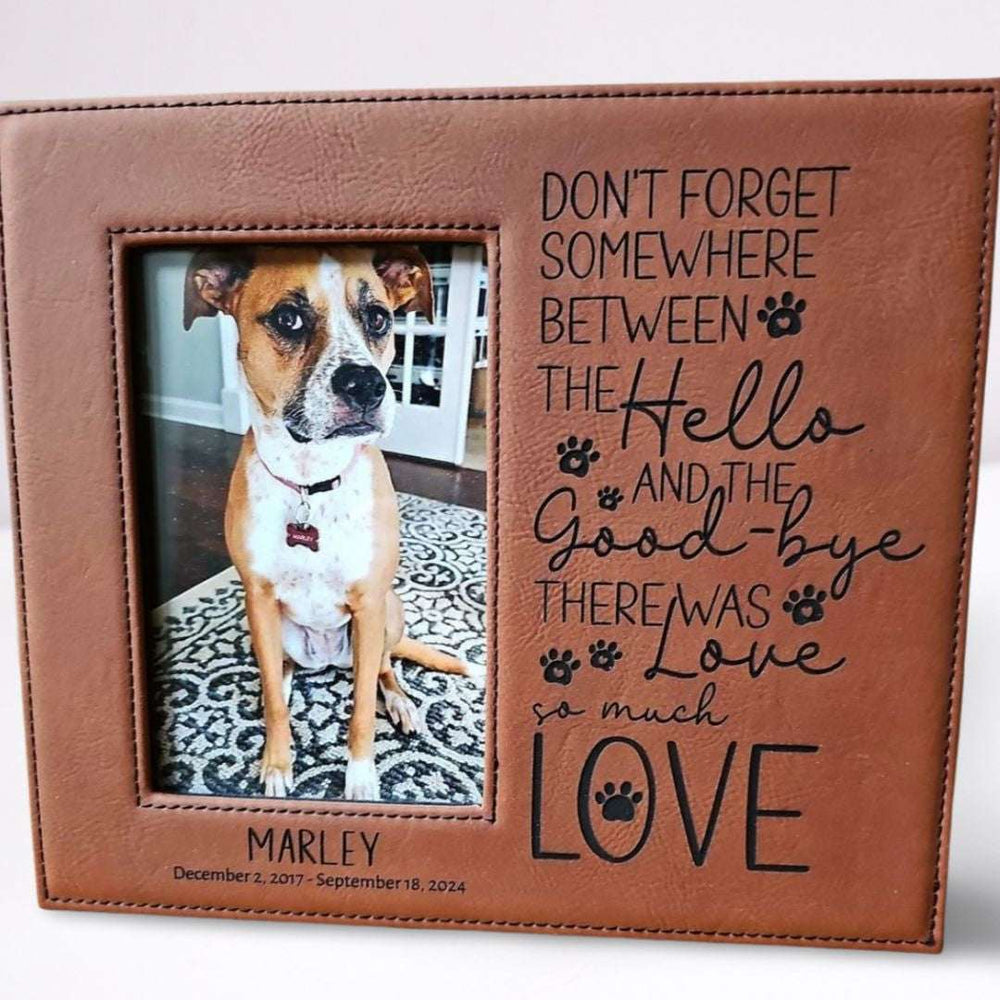 DON'T FORGET
SOMEWHERE
BETWEEN
THE Hello
AND THE
Good-bye
THERE WAS
Love
so much
LOVE
MARLEY
MARLEY
December 2, 2017 - September 18, 2024